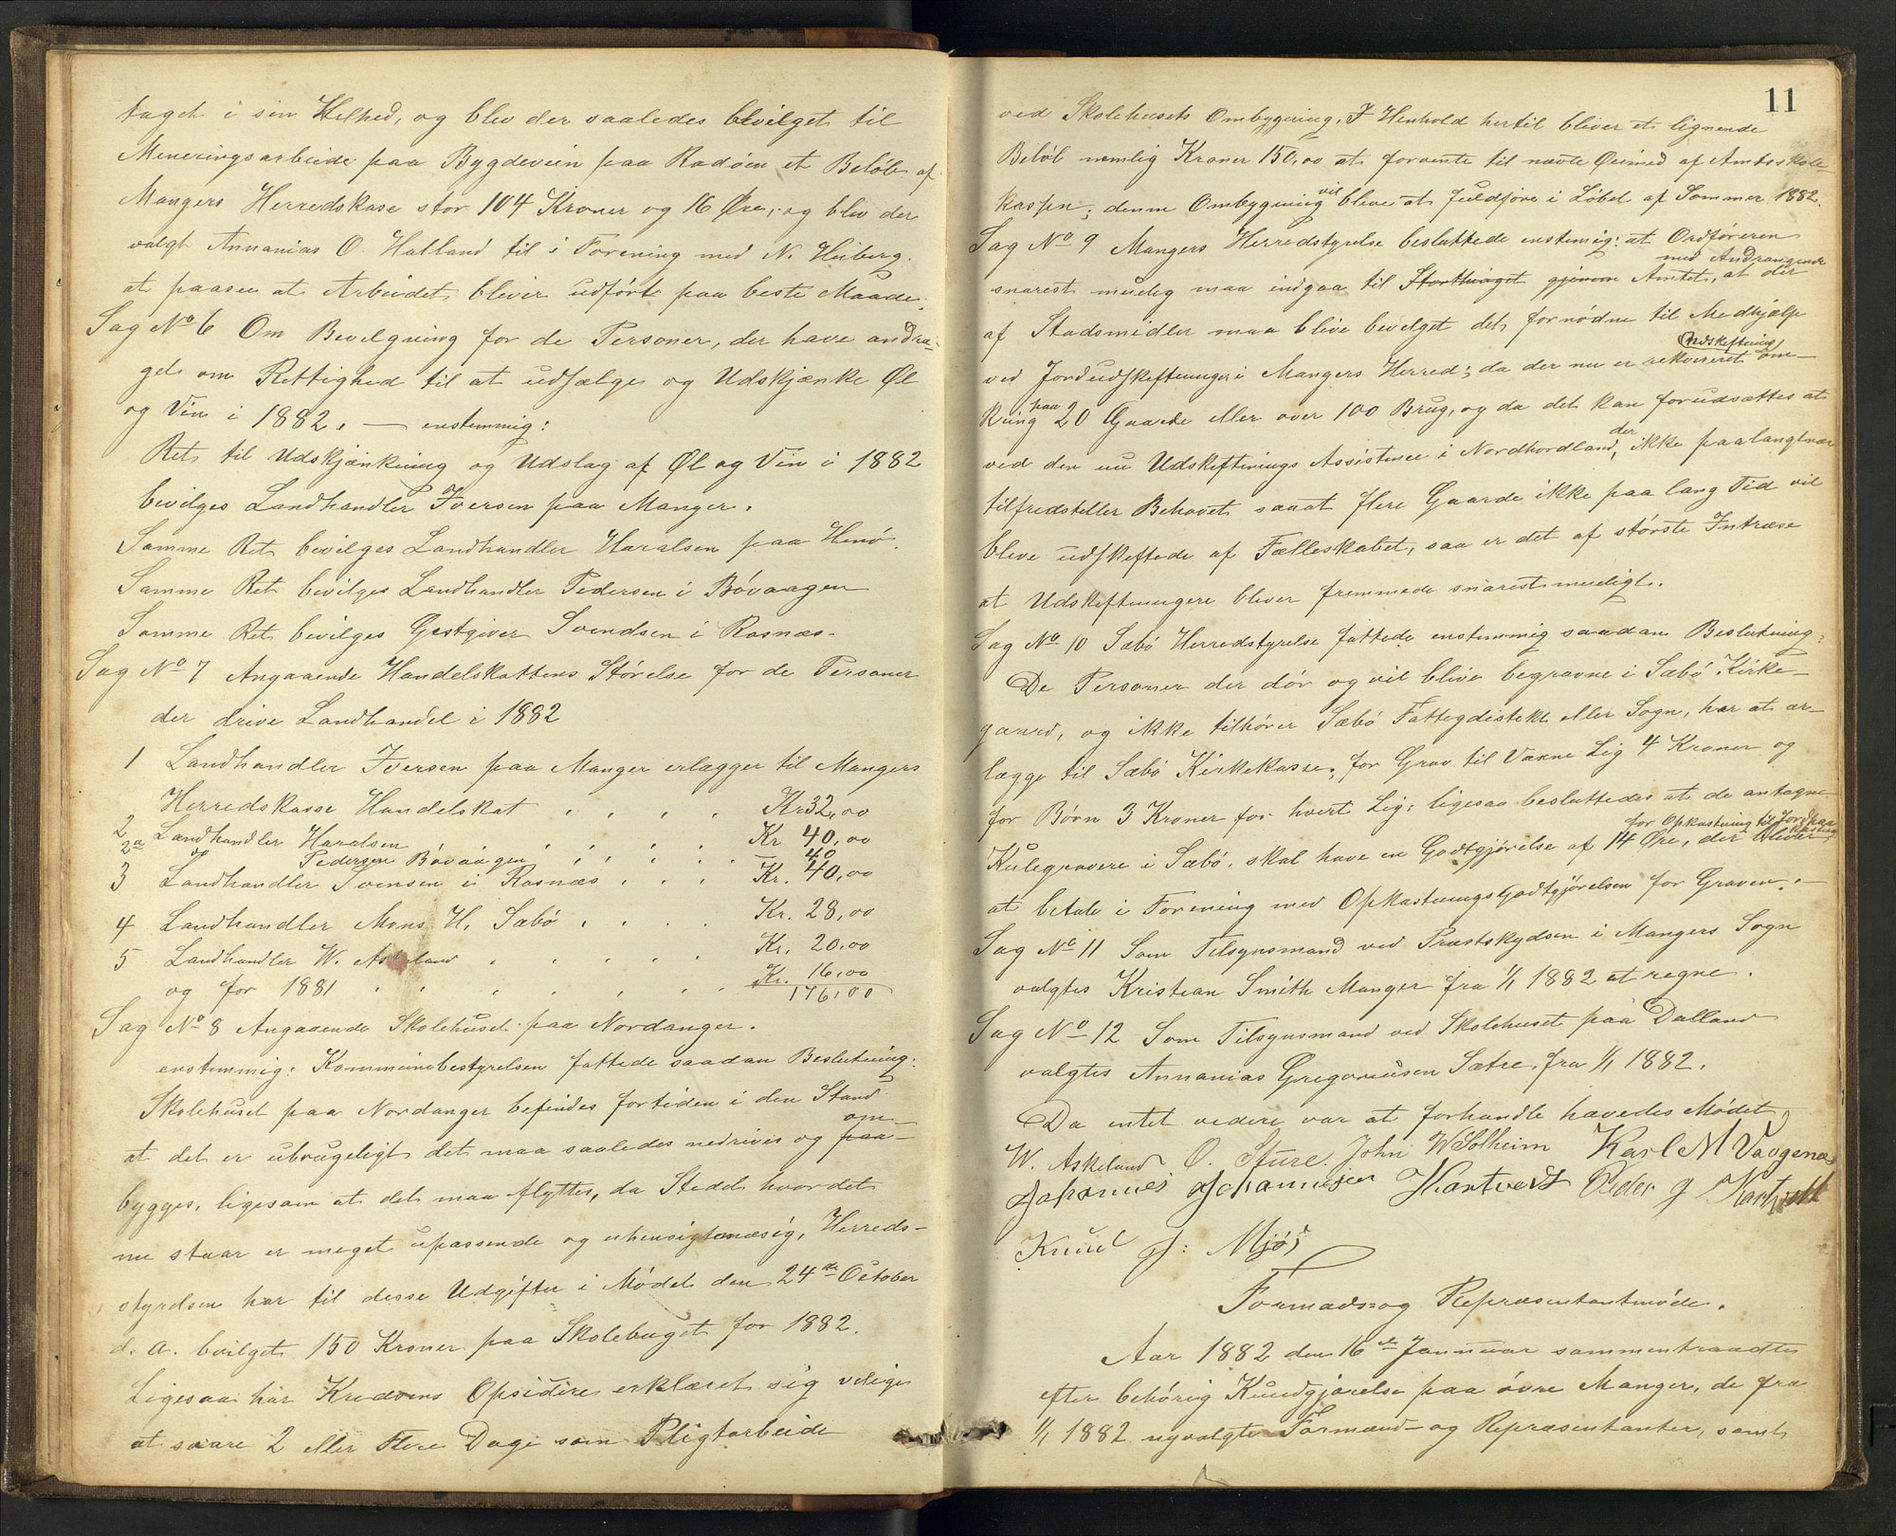 taget i sin Helhed, og blev der saaledes bevilget til
Mineringsarbeide paa Bygdeveien paa Radöen et Belöb af
Mangers Herredskase stor 104 Kroner og 16 Øre, og blev der
valgt Annanias O. Hatland til i Forening med N. Heiberg
at paasee at Arbeidet bliver udfört paa beste Maade.
Sag No 6 Om Bevilgning for de Personer, der have andra-
get om Rettighed til at udsælge og Udskjænke Øl
og Vin i 1882. — enstemmig:
Ret til Udskjænkning og Udslag af Øl og Vin i 1882
bevilges Landhandler Iversen paa Manger.
Samme Ret bevilges Landhandler Haralsen paa Henö.
Samme Ret bevilges Landhandler Pedersen i Bövaagen
Samme Ret bevilges Gestgiver Svendsen i Rosnæs.
Sag No 7 Angaaende Handelskattens Störelse for de Personer
der drive Landhandel i 1882
1 Landhandler Iversen paa Manger erlægger til Mangers
Herredskasse Handelskat . . . . Kr 32,00
2 Landhandler Haralsen . . . . Kr 40,00
2a Pedersen Bövaagen . . . . — 40
3 Landhandler Svensen i Rosnæs . . . Kr. 40,00
4 Landhandler Mons H. Sæbö . . . . Kr. 28,00
5 Landhandler W. Askeland . . . . Kr. 20.00
og for 1881 . . . . . . . Kr. 16,00
176,00
Sag No 8 Angaaende Skolehuset paa Nordanger.
enstemmig: Kommunebestyrelsen fattede saadan Beslutning:
Skolehuset paa Nordanger befindes fortiden i den Stand
at det er ubrugeligt det maa saaledes nedrives og paa- om-
bygges, ligesom at det maa flyttes, da Stedet hvor det
nu staar er meget upassende og uhensigtsmæsig, Herreds-
styrelsen har til desse Udgifter i Mödet den 24de October
d. a. bvilget 150 Kroner paa Skolebuget for 1882.
Ligesaa har Kredsens Opsidere erklæret sig vilige
at svare 2 eller Flere Dage som Pligtarbeide
11
ved Skolehusets Ombygning. I Henhold hertil bliver et lignende
Belöb nemlig Kroner 150,00 at forvente til nævte Øiemed af Amtsskole-
kassen; denne Ombygning vil blive at fuldföre i Löbet af Sommer 1882.
Sag No 9 Mangers Herredstyrelse besluttede enstemig: at Ordföreren
snarest muelig maa indgaa til Storthinget gjennem Amtet, med Andragende at der
af Stadsmidler maa blive bevelget det fornödne til Medhjælp
ved Jordudskeftninger i Mangers Herred; da der nu er rekvireret Udskeftning om-
kring paa 20 Gaarde eller over 100 Brug, og da det kan forudsættes at
ved den nu Udskeftnings Assistence i Nordhordland, der ikke paalangtnær
tilfredsteller Behovet saaat flere Gaarde ikke paa lang Tid vil
bleve udskeftede af Fælleskabet, saa er det af störste Intræse
at Udskeftningere bliver fremmede snarest mueligt.
Sag No 10 Sæbö Herredstyrelse fattede enstemmig saadan Beslutning:
De Personer der dör og vil blive begravne i Sæbö Kirke-
gaard, og ikke tilhörer Sæbö Fattegdistekt eller Sogn, har at er-
lægge til Sæbö Kirkekasse, for Grav til Vaxne Lig 4 Kroner og
for Börn 3 Kroner for hvert Lig; ligesaa besluttedes at de antagne
Kulegravere i Sæbö, skal have en Godtgjörelse af 14 Øre, for Opkastning til Jordpaakastning der bliver
at betale i Forening med Opkastningsgodtgjörelsen for Graven. —
Sag No 11 Som Tilsynsmand ved Præstskydsen i Mangers Sogn
valgtes Kristian Smith Manger fra 1/1 1882 at regne.
Sag No 12 Som Tilsynsmand ved Skolehuset paa Dalland
valgtes Annanias Gregoriusen Sætre, fra 1/1 1882.
Da entet videre var at forhandle hævedes Mödet,
W. Askeland O. Sture. John W Solheim Karl M Vaagenæs
Johannes Johannesen Hartvedt Peder J Kartveit
Knud J: Mjös
Formads- og Repræsentantmöde.
Aar 1882 den 16de Jannuar sammentraadte
efter behörig Kundgjörelse paa övre Manger, de fra
1/1 1882 nyvalgte Formænd- og Repræsentanter, samt